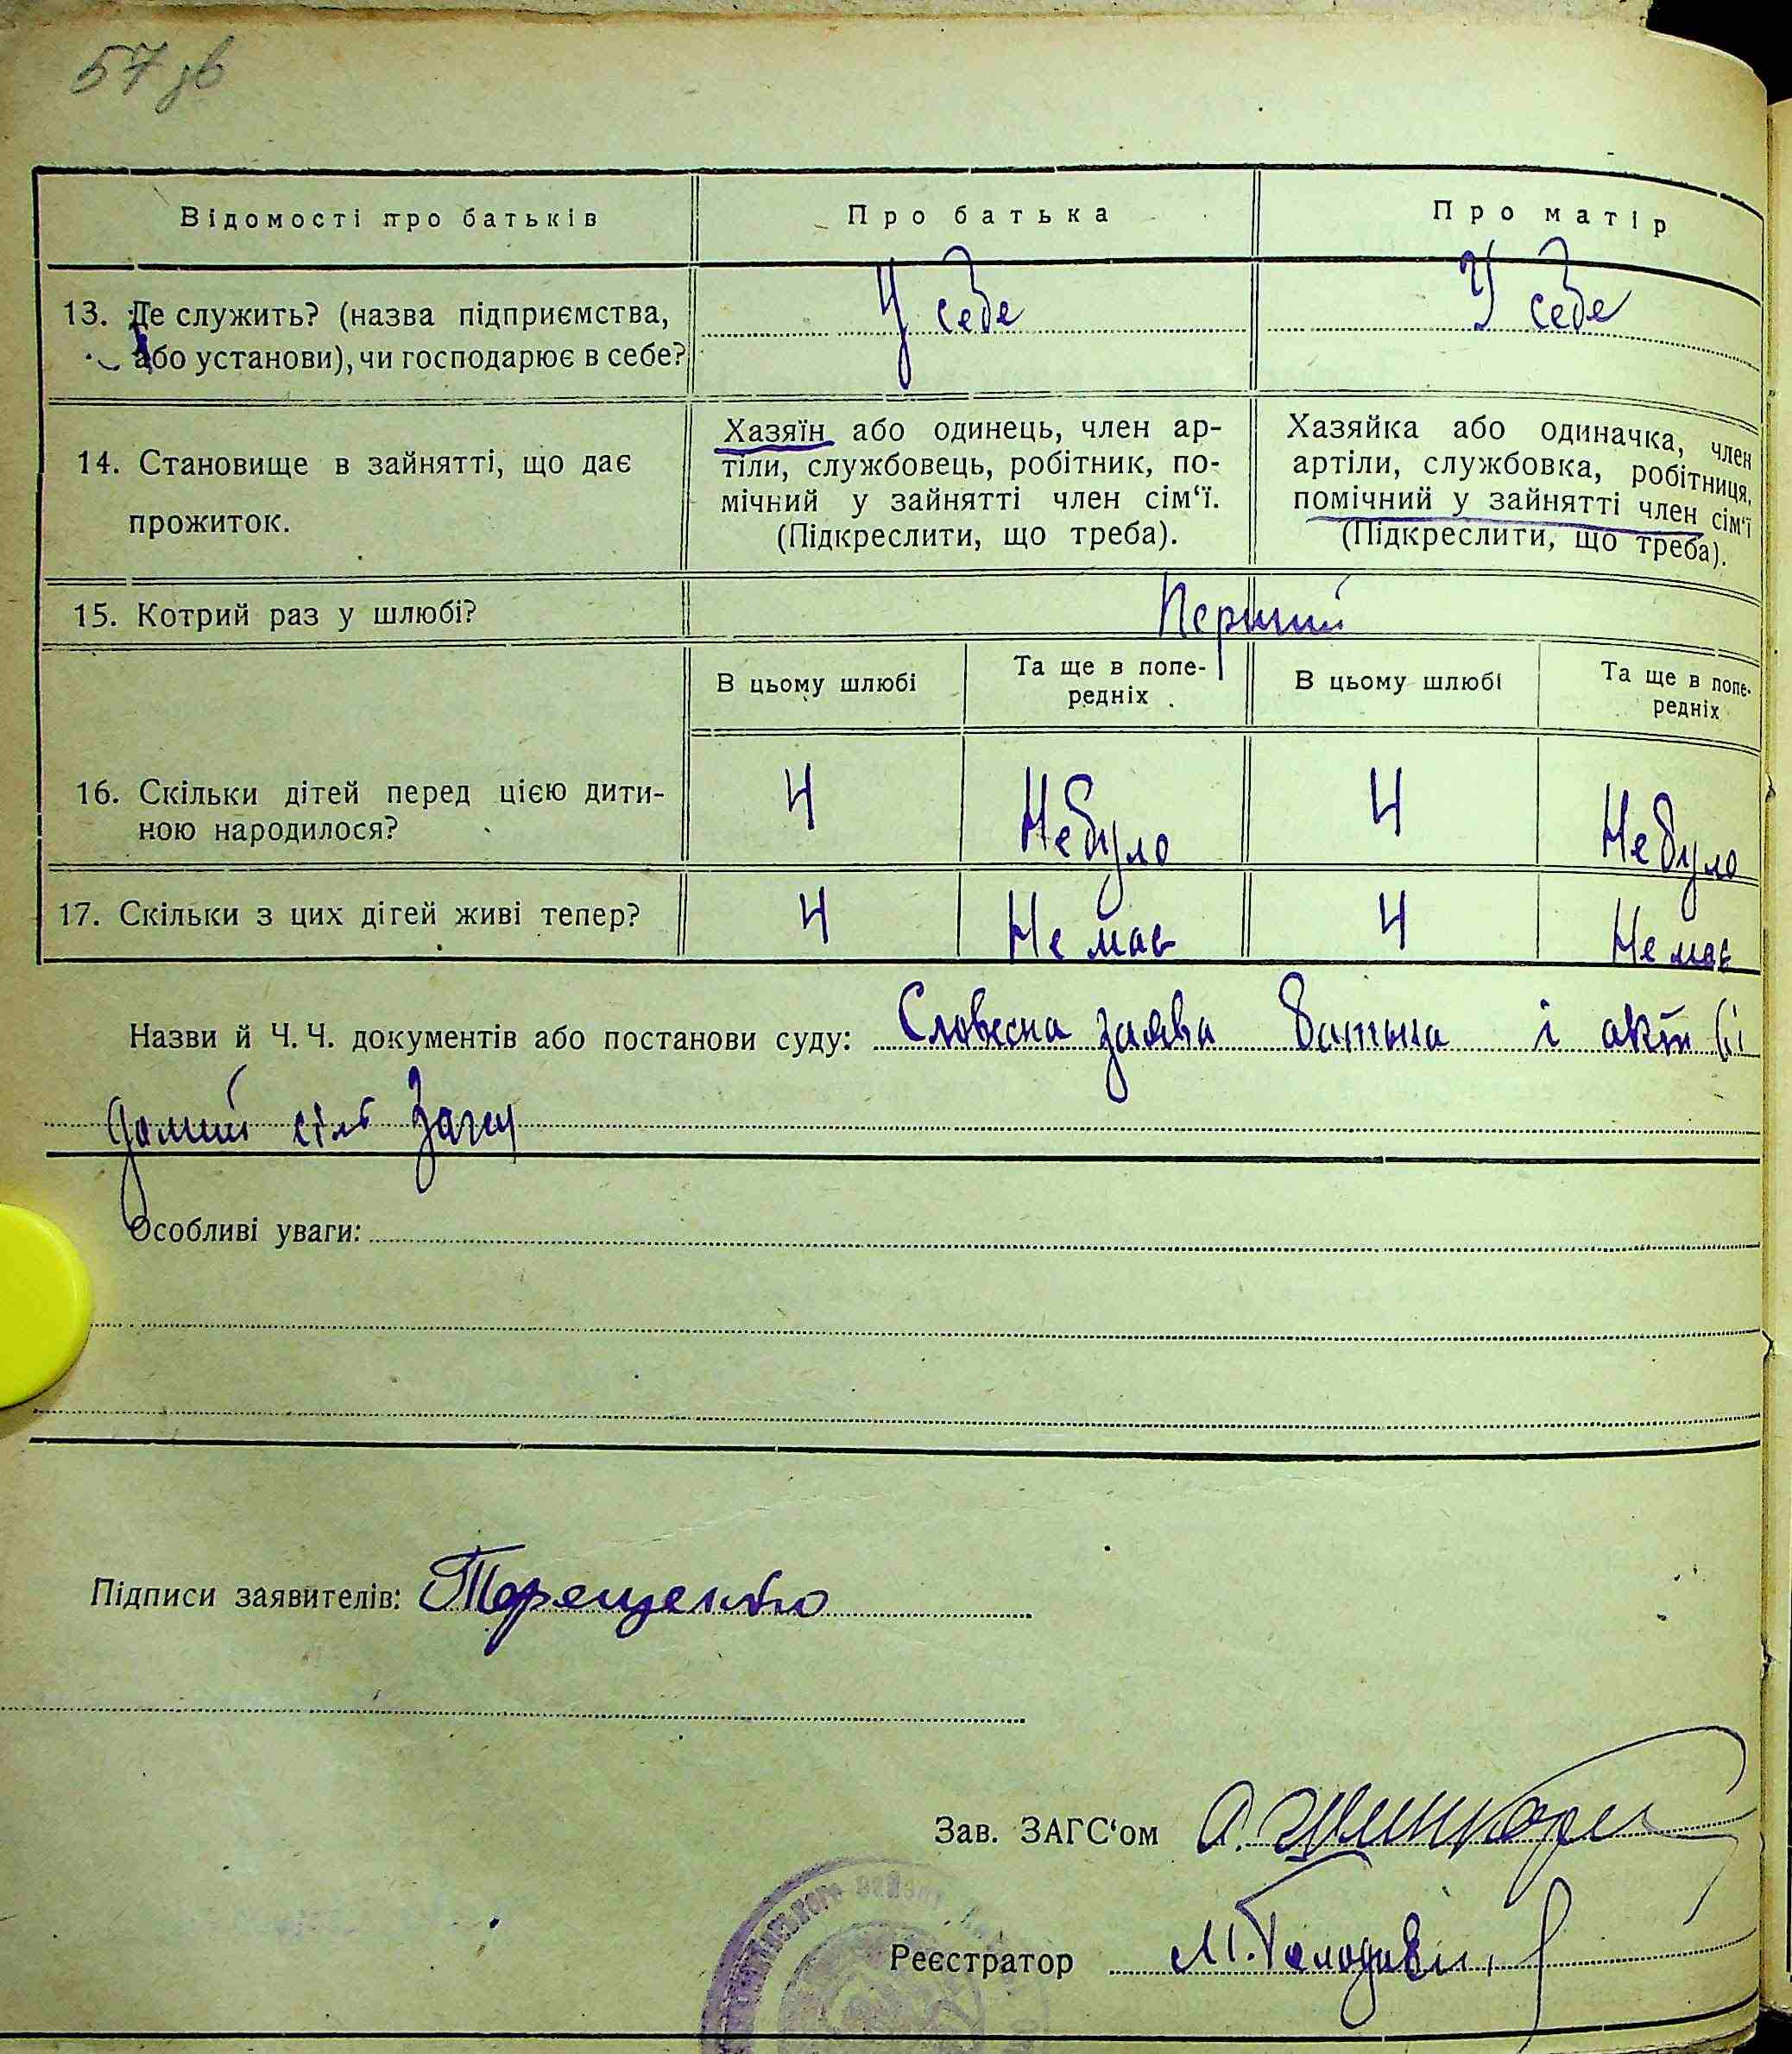 57 зв
Відомості про батьків
Про батька
Про матір
13. Де служить? (назва підприємства,
або установи), чи господарює в себе?
У себе
У себе
14. Становище в зайнятті, що дає
прожиток.
Хазяїн або одинець, член ар-
тіли, службовець, робітник, по-
мічний у зайнятті член сім‘ї.
(Підкреслити, що треба).
Хазяйка або одиначка, член
артіли, службовка, робітниця,
помічний у зайнятті член сім‘ї
(Підкреслити, що треба).
15. Котрий раз у шлюбі?
Перший
В цьому шлюбі
Та ще в попе-
редніх
В цьому шлюбі
Та ще в попе-
редніх
16. Скільки дітей перед цією дити-
ною народилося?
4
Небуло
4
Небуло
17. Скільки з цих дітей живі тепер?
4
Не має
4
Не має
Назви й Ч. Ч. документів або постанови суду: Словесна заява батька і акт
Особливі уваги:
Підписи заявителів: Терещенко
Зав. ЗАГС‘ом
Реєстратор